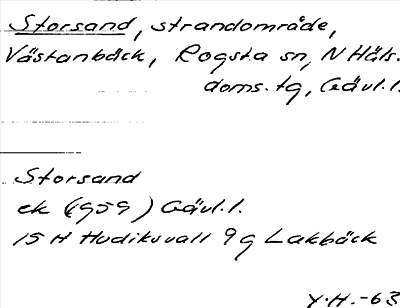 Storsand, strandområde,
Västanbäck, Rogsta sn, N Häls.
doms. tg, Gävl.l.
Storsand
ek (1959) Gävl.l.
15 H Hudiksvall 9g Lakbäck
Y.H.-63